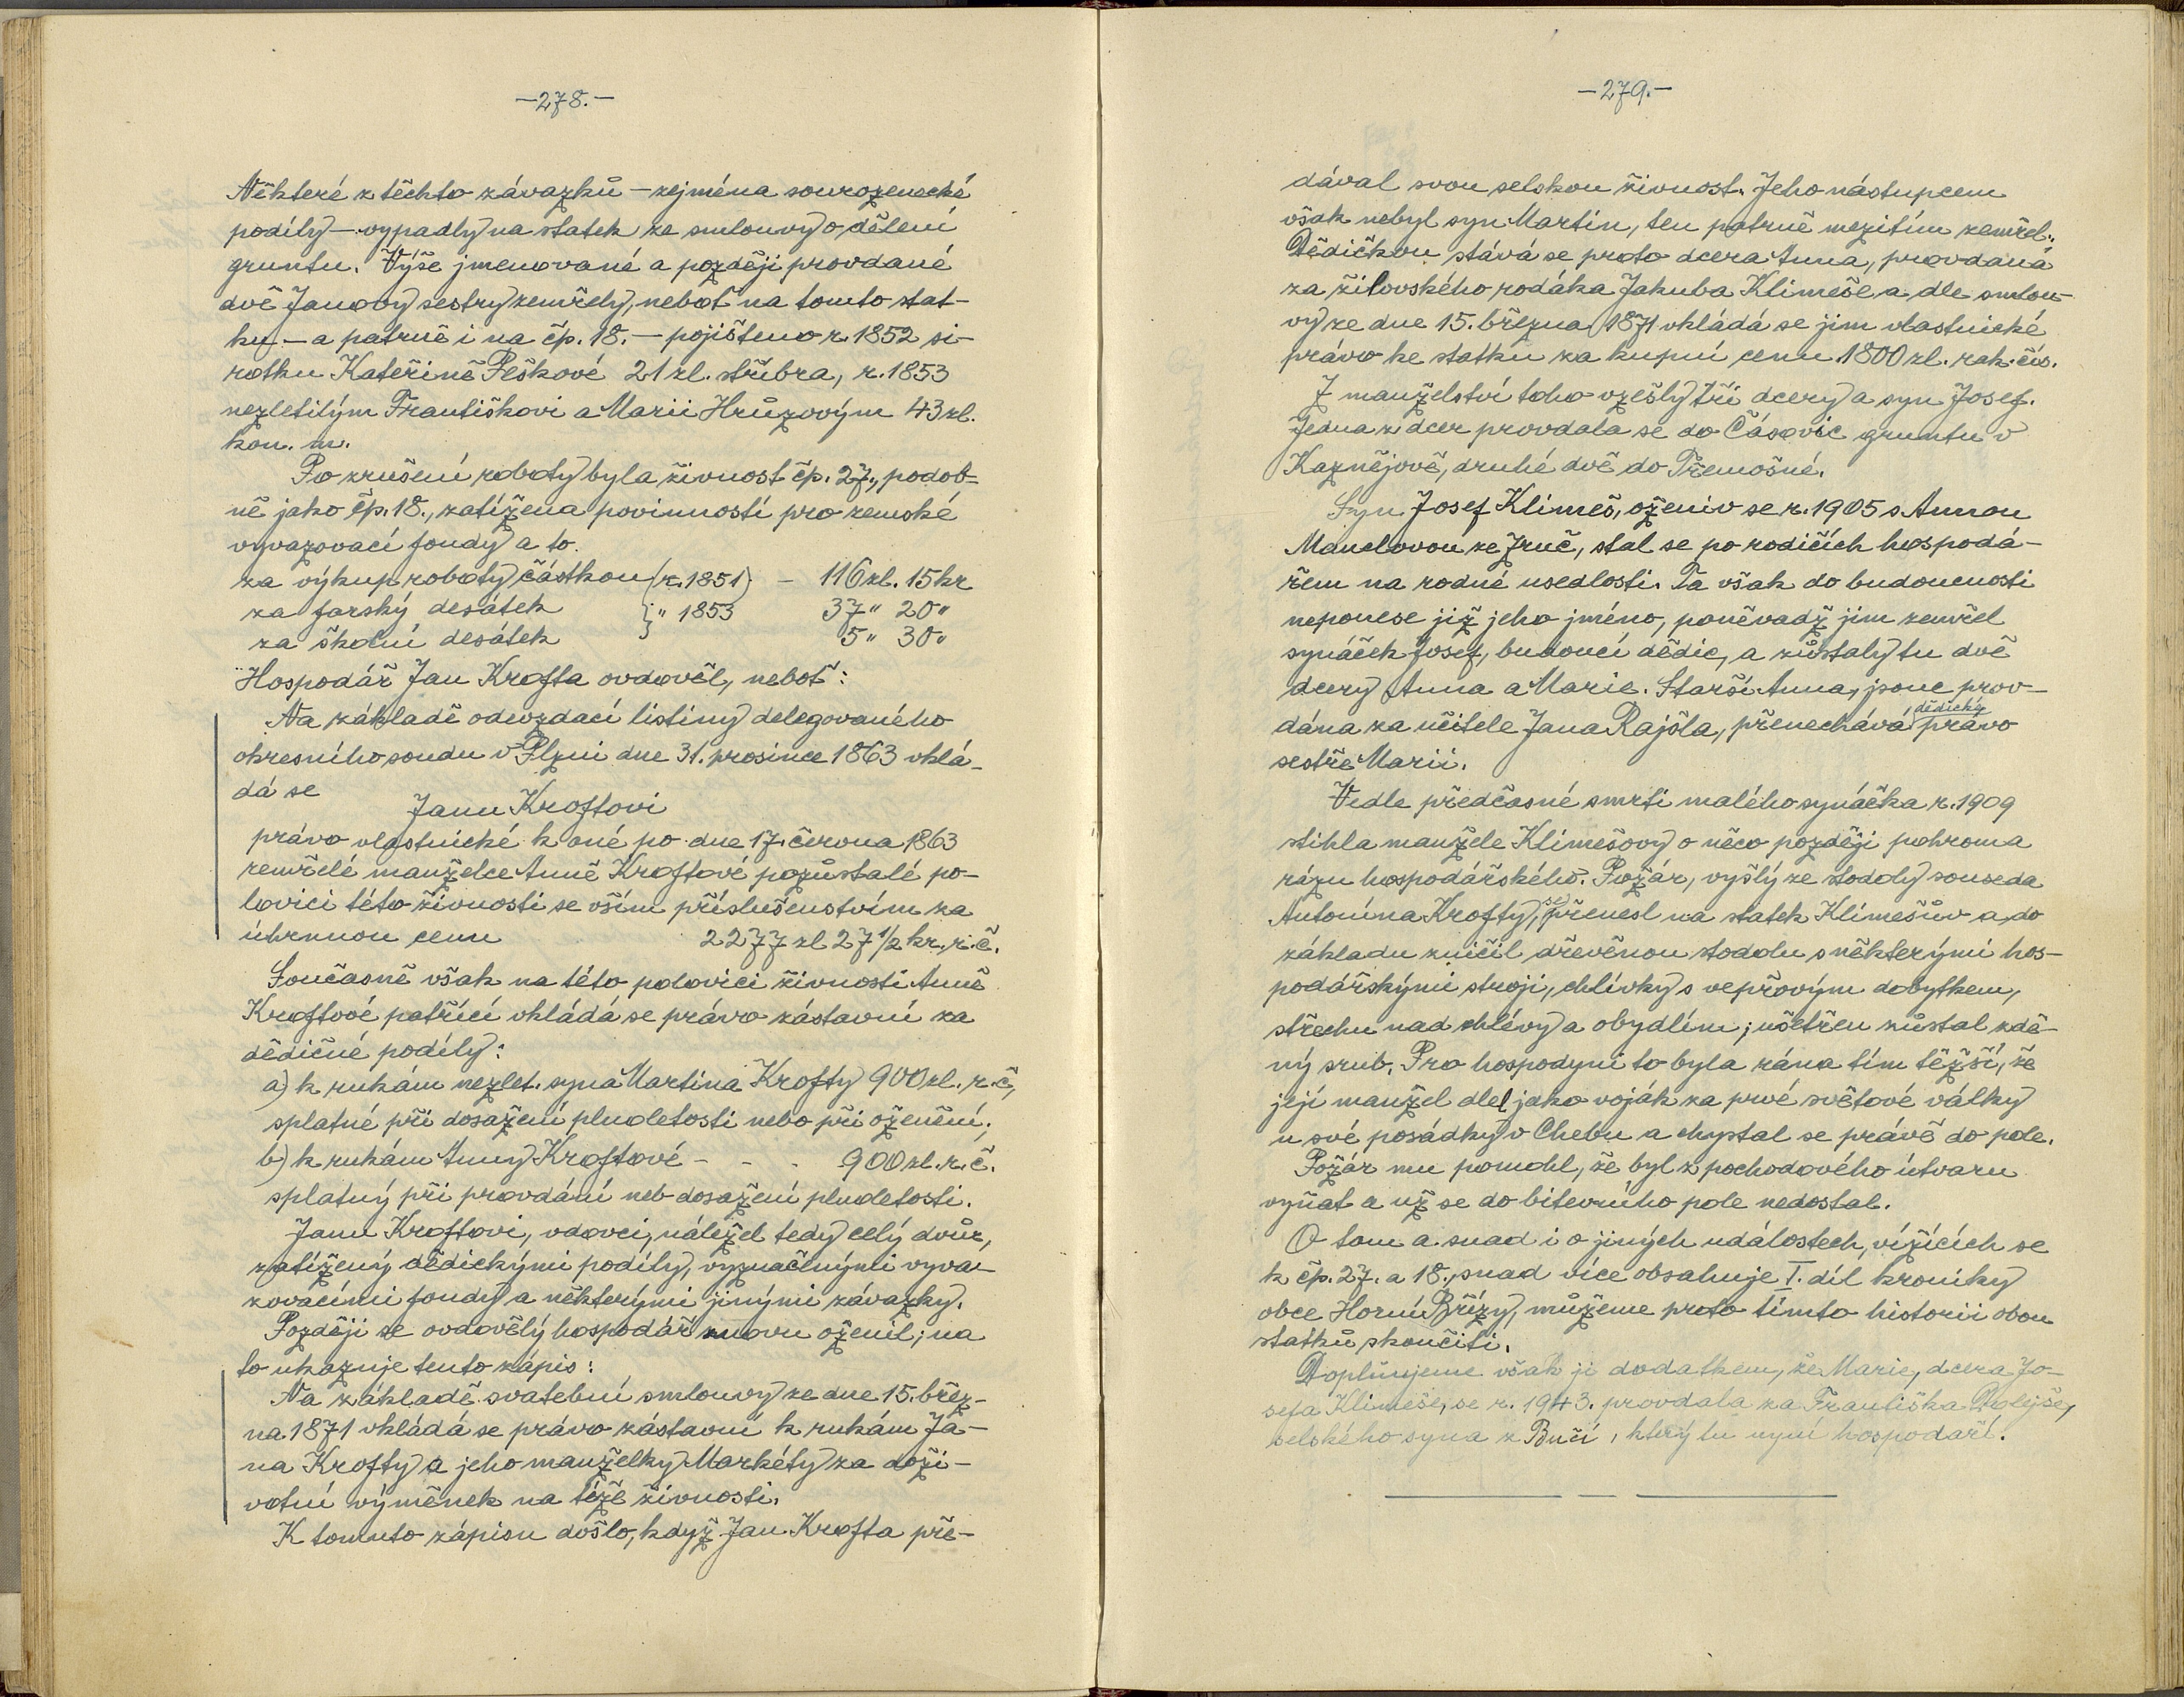 -278.-
Některé z těchto závazků - zejména sourozenecké
podíly - vypadly na statek ze smlouvy o dělení
gruntu. Výše jmenované a později provdané
dvě Janovy sestry zemřely, neboť na tomto stat-
ku - a patrně i na čp. 18. - pojištěno r. 1852 si-
rotku Kateřině Peškové 21 zl. stříbra, r. 1853
nezletilým Františkovi a Marii Hrůzovým 43 zl.
kon. m.
Po zrušení roboty byla živnost čp. 27., podob-
ně jako čp. 18., zatížena povinností pro zemské
vyvazovací fondy a to.
za výkup roboty částkou (r. 1851) - 116 zl. 15 kr
za farský desátek } " 1853 37 " 20 "
za školní desátek 5 " 30 "
Hospodář Jan Krofta ovdověl, neboť:
Na základě odevzdací listiny delegovaného
okresního soudu v Plzni dne 31. prosince 1863 vklá-
dá se
Janu Kroftovi
právo vlastnické k oné po dne 17. června 1863
zemřelé manželce Anně Kroftové pozůstalé po-
lovici této živnosti se vším příslušenstvím za
úhrnnou cenu 2277 zl 27 1/2 kr. r. č.
Současně však na této polovici živnosti Anně
Kroftové patřící vkládá se právo zástavní za
dědičné podíly:
a) k rukám nezlet. syna Martina Krofty 900 zl. r. č.,
splatné při dosažení plnoletosti nebo při oženění;
b) k rukám Anny Kroftové - - - 900 zl. r. č.
splatný při provdání neb dosažení plnoletosti.
Janu Kroftovi, vdovci, náležel tedy celý dvůr,
zatížený dědickými podíly, vyznačenými vyva-
zovacími fondy a některými jinými závazky.
Později se ovdovělý hospodář znovu oženil; na
to ukazuje tento zápis:
Na základě svatební smlouvy ze dne 15. břez-
na 1871 vkládá se právo zástavní k rukám Ja-
na Krofty a jeho manželky Markéty za doži-
votní výměnek na téže živnosti.
K tomuto zápisu došlo, když Jan Krofta pře-
-279.-
dával svou selskou živnost. Jeho nástupcem
však nebyl syn Martin, ten patrně mezitím zemřel.
Dědičkou stává se proto dcera Anna, provdaná
za žilovského rodáka Jakuba Klimeše a dle smlou-
vy ze dne 15. března 1871 vkládá se jim vlastnické
právo ke statku za kupní cenu 1800 zl. rak. čís.
Z manželství toho vzešly tři dcery a syn Josef.
Jedna z dcer provdala se do Čásovic gruntu v
Kaznějově, druhé dvě do Třemošné.
Syn Josef Klimeš, oženiv se r. 1905 s Annou
Manclovou ze Zruč, stal se po rodičích hospodá-
řem na rodné usedlosti. Ta však do budoucnosti
neponese již jeho jméno, poněvadž jim zemřel
synáček Josef, budoucí dědic, a zůstaly tu dvě
dcery Anna a Marie. Starší Anna, jsouc prov-
dána za učitele Jana Rajšla, přenechává dědický právo
sestře Marii.
Vedle předčasné smrti malého synáčka r. 1909
stihla manžele Klimešovy o něco později pohroma
rázu hospodářského. Požár, vyšlý ze stodoly souseda
Antonína Krofty, se přenesl na statek Klimešův a do
základu zničil dřevěnou stodolu s některými hos-
podářskými stroji, chlívky s vepřovým dobytkem,
střechu nad chlévy a obydlím; ušetřen zůstal zdě-
ný srub. Pro hospodyni to byla rána tím těžší, že
její manžel dlel jako voják za prvé světové války
u své posádky v Chebu a chystal se právě do pole.
Požár mu pomohl, že byl z pochodového útvaru
vyňat a už se do bitevního pole nedostal.
O tom a snad i o jiných událostech, vížících se
k čp. 27. a 18., snad více obsahuje I. díl kroniky
obce Horní Břízy, můžeme proto tímto historii obou
statků skončiti.
Doplňujeme však ji dodatkem, že Marie, dcera Jo-
sefa Klimeše, se r. 1943. provdala za Františka Dolejše,
selského syna z Bučí, který tu nyní hospodaří.